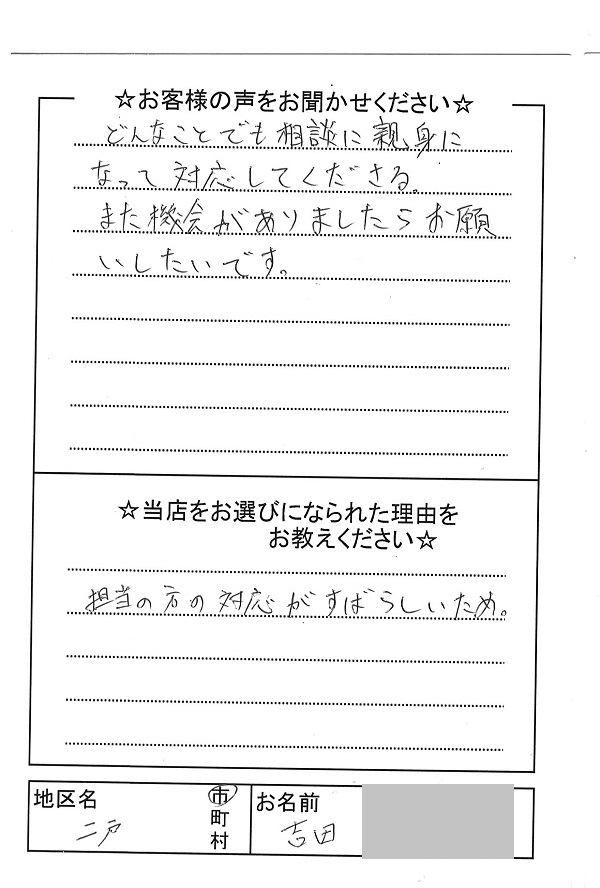 ☆お客様の声をお聞かせください☆
どんなことでも相談に親身に
なって対応してくださる。
また機会がありましたらお願
いしたいです。
☆当店をお選びになられた理由を
お教えください☆
担当の方の対応がすばらしいため。
地区名
二戸
市
町
村
お名前
吉田